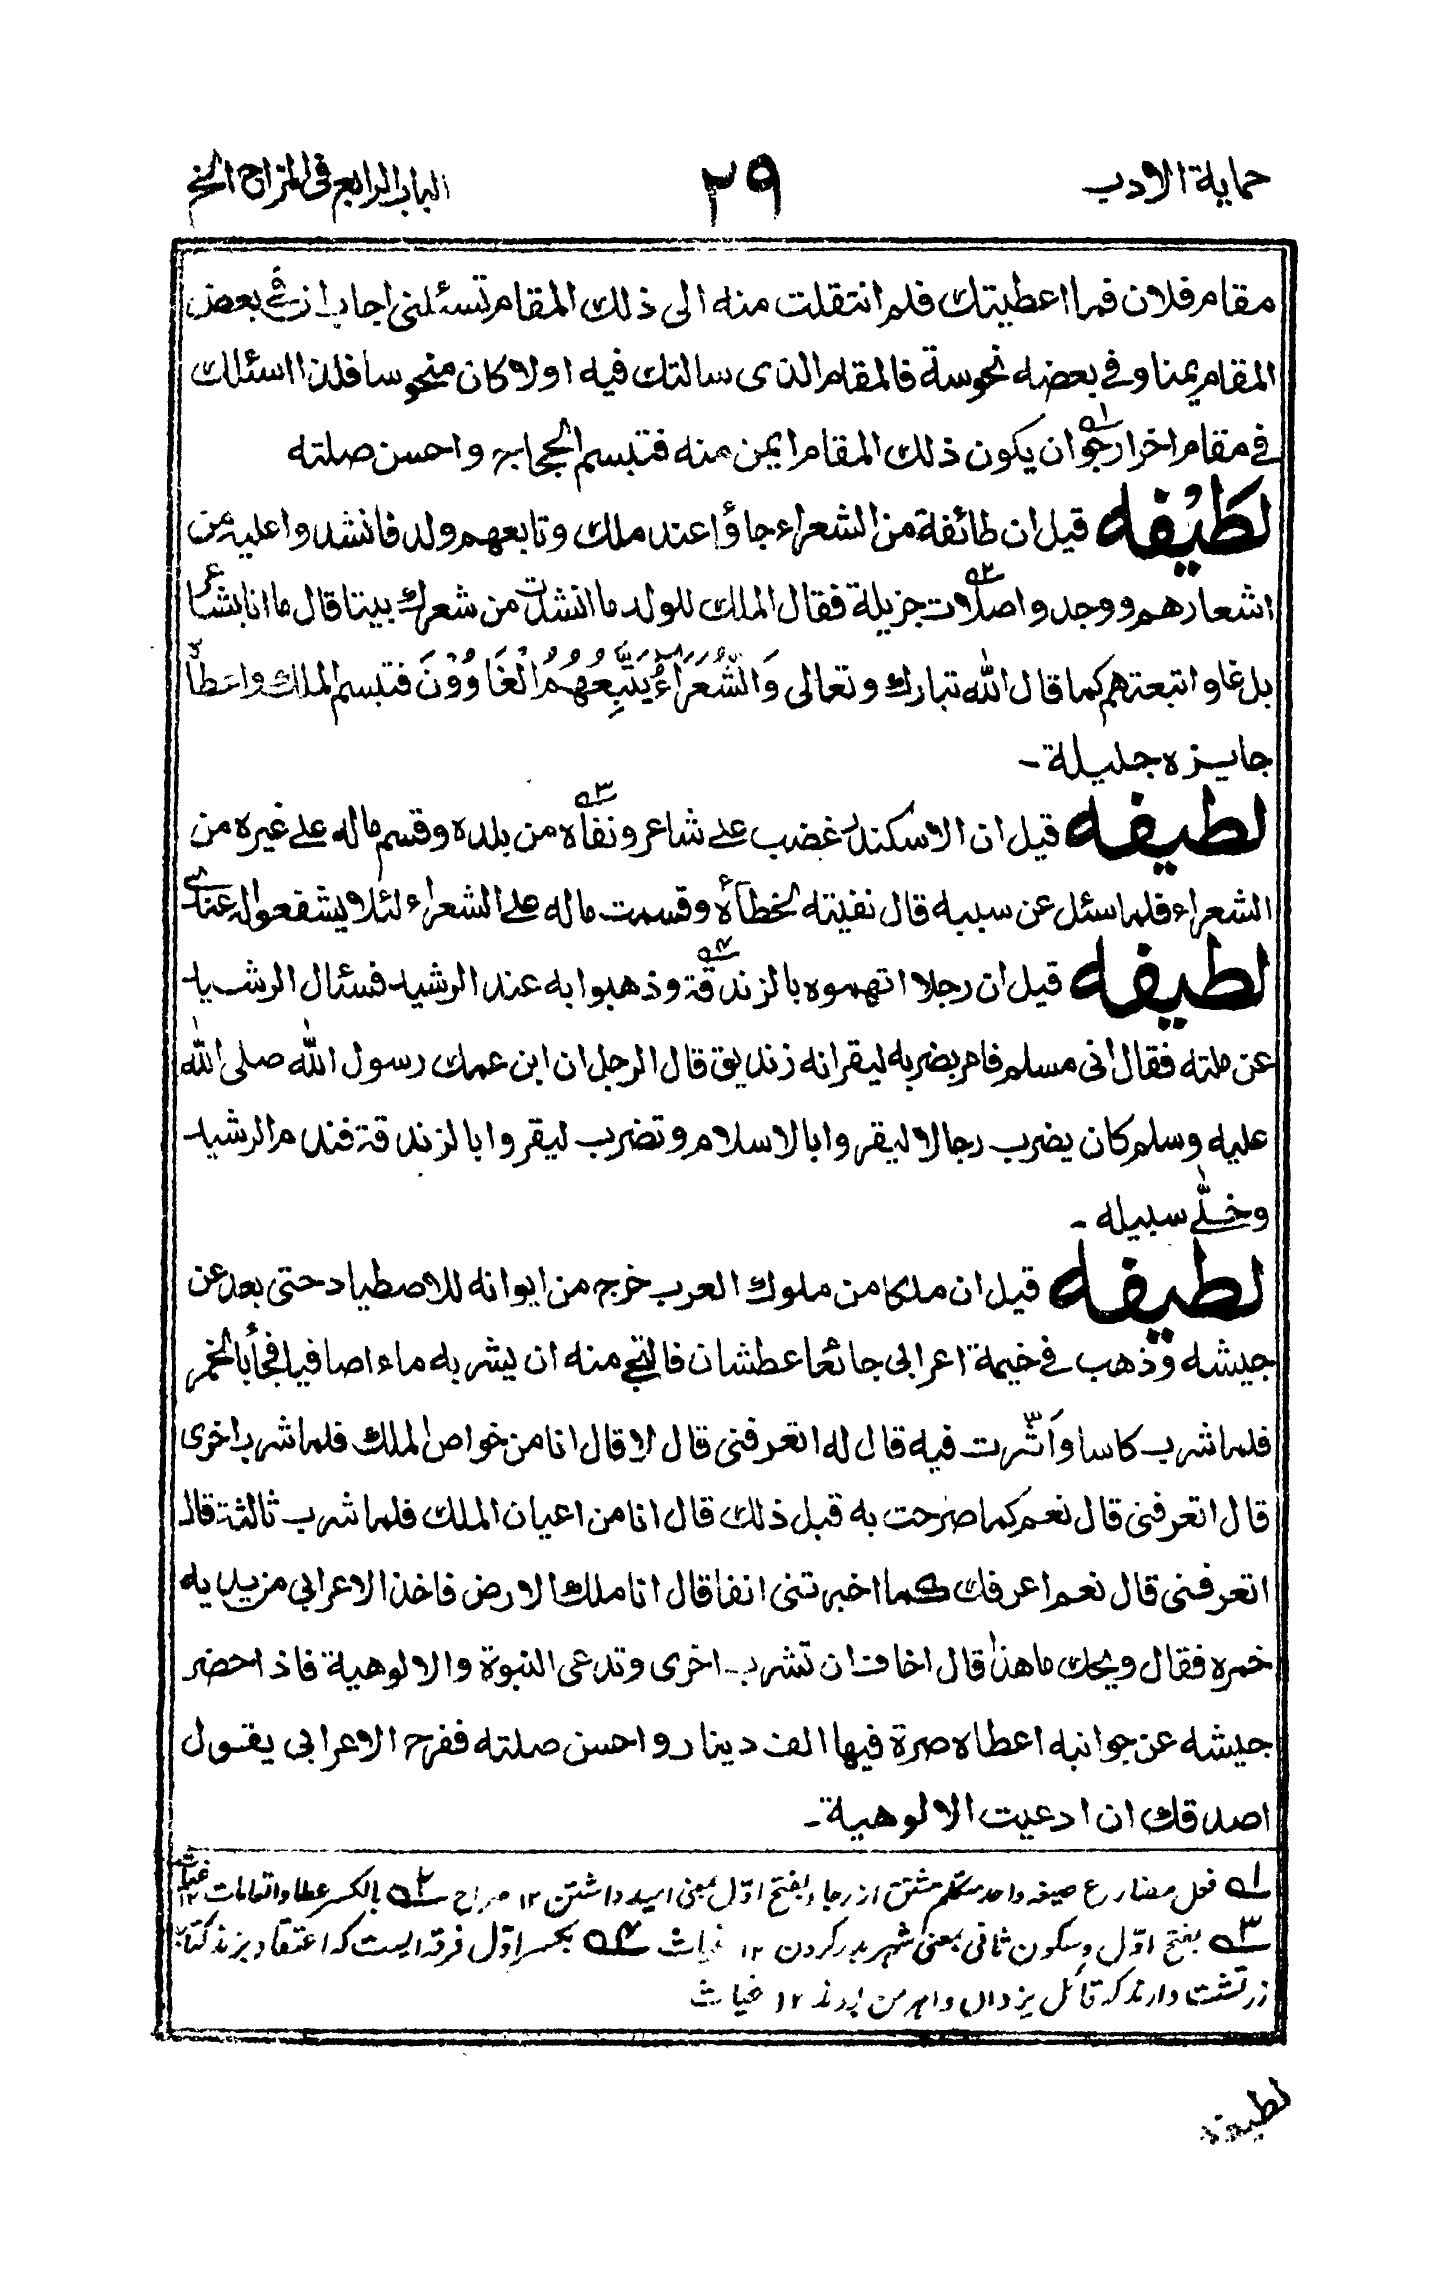 حماية الادب
٢٩
الباب الرابع فى المزاح الخ
مقام فلان فما اعطيتك فلم انتقلت منه الى ذلك المقام تسئلنى اجاب ان فى بعض
المقام يمنا وفى بعضه نحوسة فالمقام الذى سالتك فيه اولا كان منحوسا فلذا اسئلك
فى مقام اخر ارجو ان يكون ذلك المقام ايمن منه فتبسم الحجاب واحسن صلته
لطيفه قيل ان طائفة من الشعراء جاؤا عند ملك وتابعهم ولد فانشدوا عليه من
اشعارهم ووجدوا صلات جزيلة فقال الملك للولد ما انشدت من شعرك بيتا قال ما انا بشاعر
بل غاو اتبعتهم كما قال الله تبارك وتعالى وَالشُّعَرَاءُ يَتَّبِعُهُمُ الْغَاوُوْنَ فتبسم الملك واعطاه
جايزه جليلة -
لطيفه قيل ان الاسكندر غضب على شاعر ونفاه من بلده وقسم ماله على غيره من
الشعراء فلما سئل عن سببه قال نفيته لخطأه وقسمت ماله على الشعراء لئلا يشفعوا له عندى
لطيفه قيل ان رجلا اتهموه بالزندقة وذهبوا به عند الرشيد فسئال الرشيد
عن ملته فقال انى مسلم فامر بضربه ليقر انه زنديق قال الرجل ان ابن عمك رسول الله صلى الله
عليه وسلم كان يضرب رجالا ليقروا بالاسلام وتضرب ليقروا بالزندقة فندم الرشيد
وخلّى سبيله -
لطيفه قيل ان ملكا من ملوك العرب خرج من ايوانه للاصطياد حتى بعد عن
جيشه وذهب فى خيمة اعرابى جائعا عطشان فالتجى منه ان يشربه ماء اصافيا فجأ بالخمر
فلما شرب كاسا وَاَثّرت فيه قال له اتعرفنى قال لا قال انا من خواص الملك فلما شرب اخرى
قال اتعرفنى قال نعم كما صرحت به قبل ذلك قال انا من اعيان الملك فلما شرب ثالثة قال
اتعرفنى قال نعم اعرفك كما اخبرتنى انفا قال انا ملك الارض فاخذ الاعرابى من يديه
خمره فقال ويحك ما هذا قال اخاف ان تشرب اخرى وتدعى النبوة والالوهية فاذ احضر
جيشه عن جوانبه اعطاه صرة فيها الف دينار واحسن صلته ففرح الاعرابى يقول
اصدقك ان ادعيت الالوهية -
١ه فعل مضارع صيغه واحد متكلم مشتق از رجاء بفتح اوّل بمعنى اميد داشتن ١٢ صراح ٢ه بالكسر عطا وانعامات ١٢ غياث
٣ه بفتح اوّل وسكون ثانى بمعنى شهر بدر كردن ١٢ غياث ٤ه بكسر اوّل فرقه ايست كه اعتقاد بزند كتاب
زرتشت دارند كه قائل يزدان واهرمن بودند ١٢ غياث
لطيفه